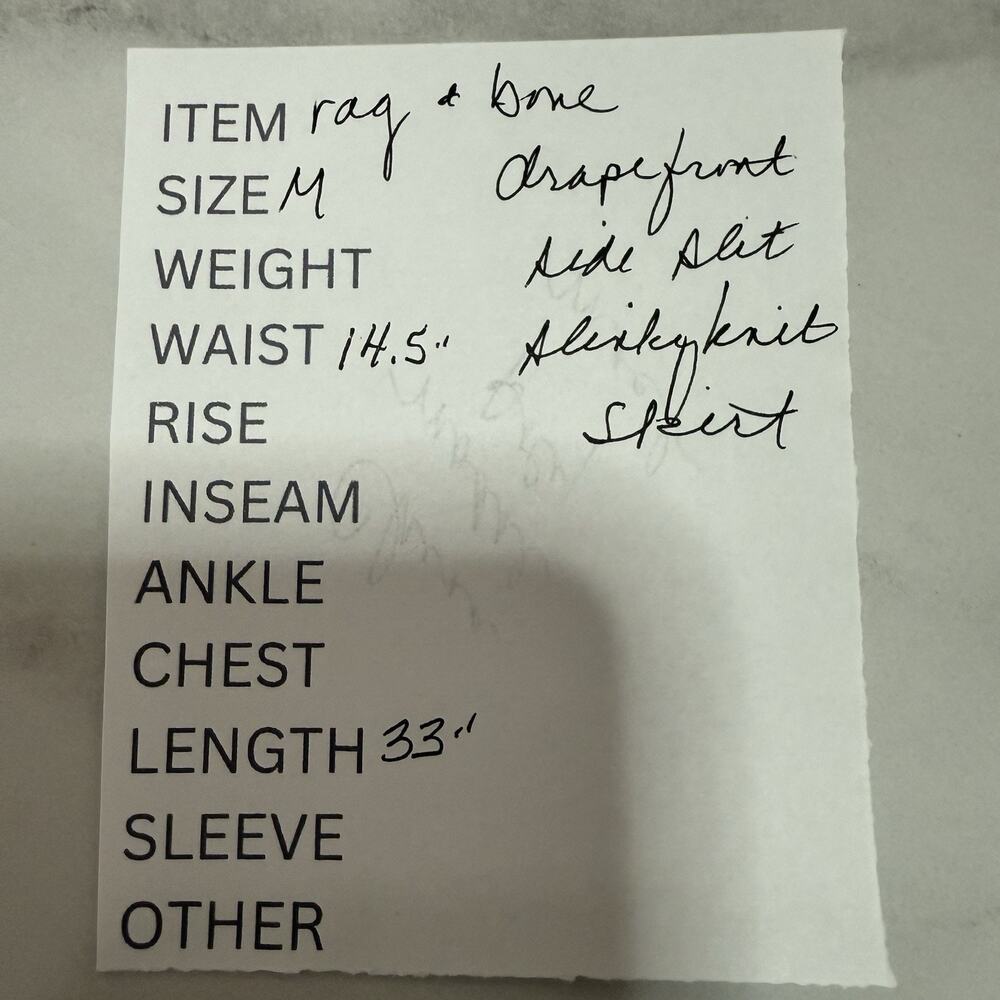 ITEM rag & bone
SIZE M drapefront
WEIGHT side slit
WAIST 14.5" slinky knit
RISE skirt
INSEAM
ANKLE
CHEST
LENGTH 33"
SLEEVE
OTHER